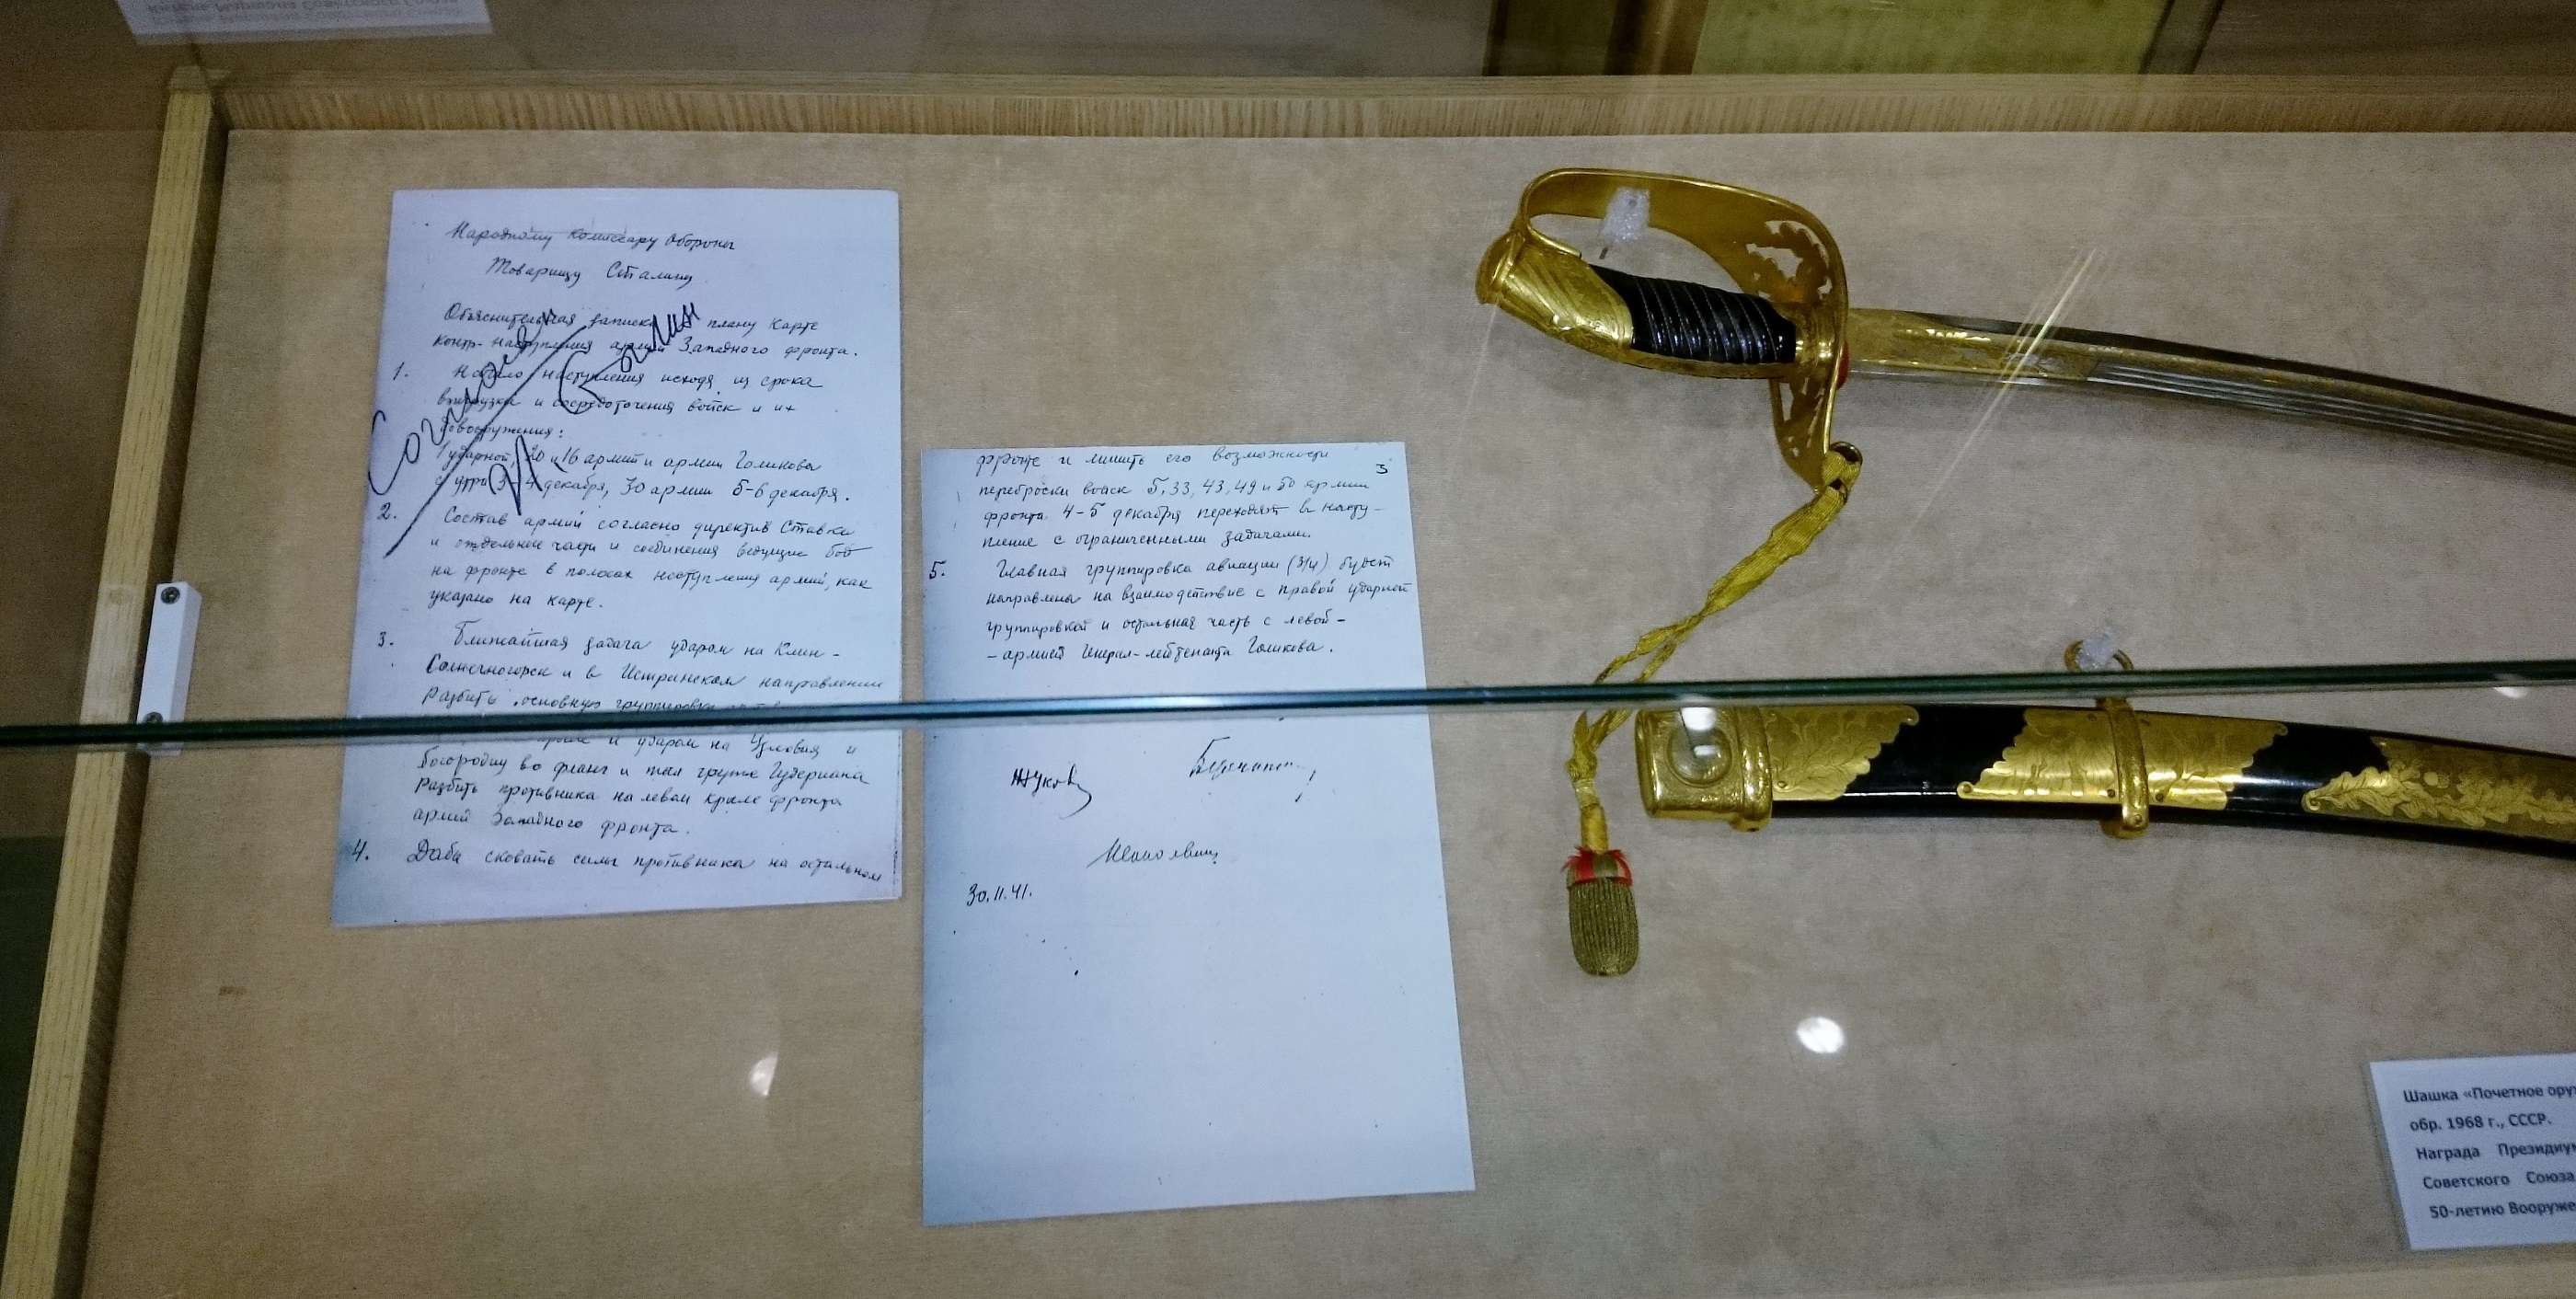 Народному Комиссару Обороны
Товарищу Сталину
Объяснительная записка плану карте
контр-наступления армий Западного фронта.
1. Начало наступления исходя из срока
выгрузки и сосредоточения войск и их
довооружения:
1 ударной, 20 и 16 армий и армии Голикова
с утра 3-4 декабря, 30 армии 5-6 декабря.
2. Состав армий согласно директив Ставки
и отдельные части и соединения ведущие бой
на фронте в полосах наступления армий, как
указано на карте.
3. Ближайшая задача ударом на Клин-
Солнечногорск и в Истринском направлении
разбить основную группировку
и ударом на Узловая и
Богородицк во фланг и тыл группе Гудериана
разбить противника на левом крыле фронта
армий Западного фронта.
4. Дабы сковать силы противника на остальном
Согласен
И Сталин
3
фронте и лишить его возможности
переброски войск 5, 33, 43, 49 и 50 армии
фронта 4-5 декабря переходят в насту-
пление с ограниченными задачами.
5. Главная группировка авиации (3/4) будет
направлена на взаимодействие с правой ударной
группировкой и остальная часть с левой-
-армией Генерал-лейтенанта Голикова.
Жуков
30.11.41.
Шашка «Почетное ору
обр. 1968 г., СССР.
Награда Президиу
Советского Союза
50-летию Вооруже